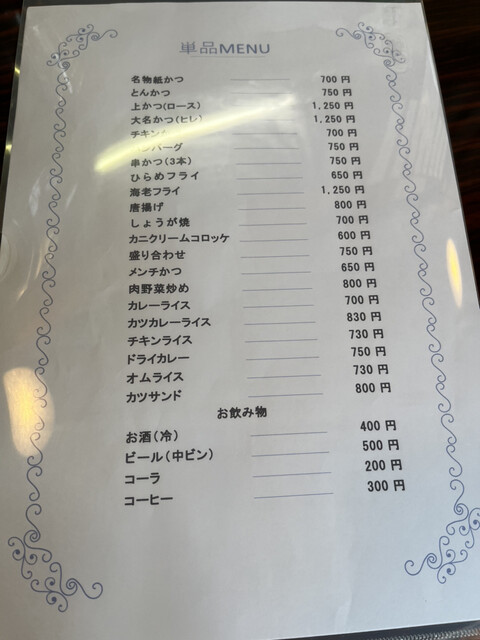 単品MENU
名物紙かつ 700 円
とんかつ 750 円
上かつ(ロース) 1,250 円
大名かつ(ヒレ) 1,250 円
チキン 700 円
ンバーグ 750 円
串かつ(3本) 750 円
ひらめフライ 650 円
海老フライ 1,250 円
唐揚げ 800 円
しょうが焼 700 円
カニクリームコロッケ 600 円
盛り合わせ 750 円
メンチかつ 650 円
肉野菜炒め 800 円
カレーライス 700 円
カツカレーライス 830 円
チキンライス 730 円
ドライカレー 750 円
オムライス 730 円
カツサンド 800 円
お飲み物
お酒(冷) 400 円
ビール(中ビン) 500 円
コーラ 200 円
コーヒー 300 円